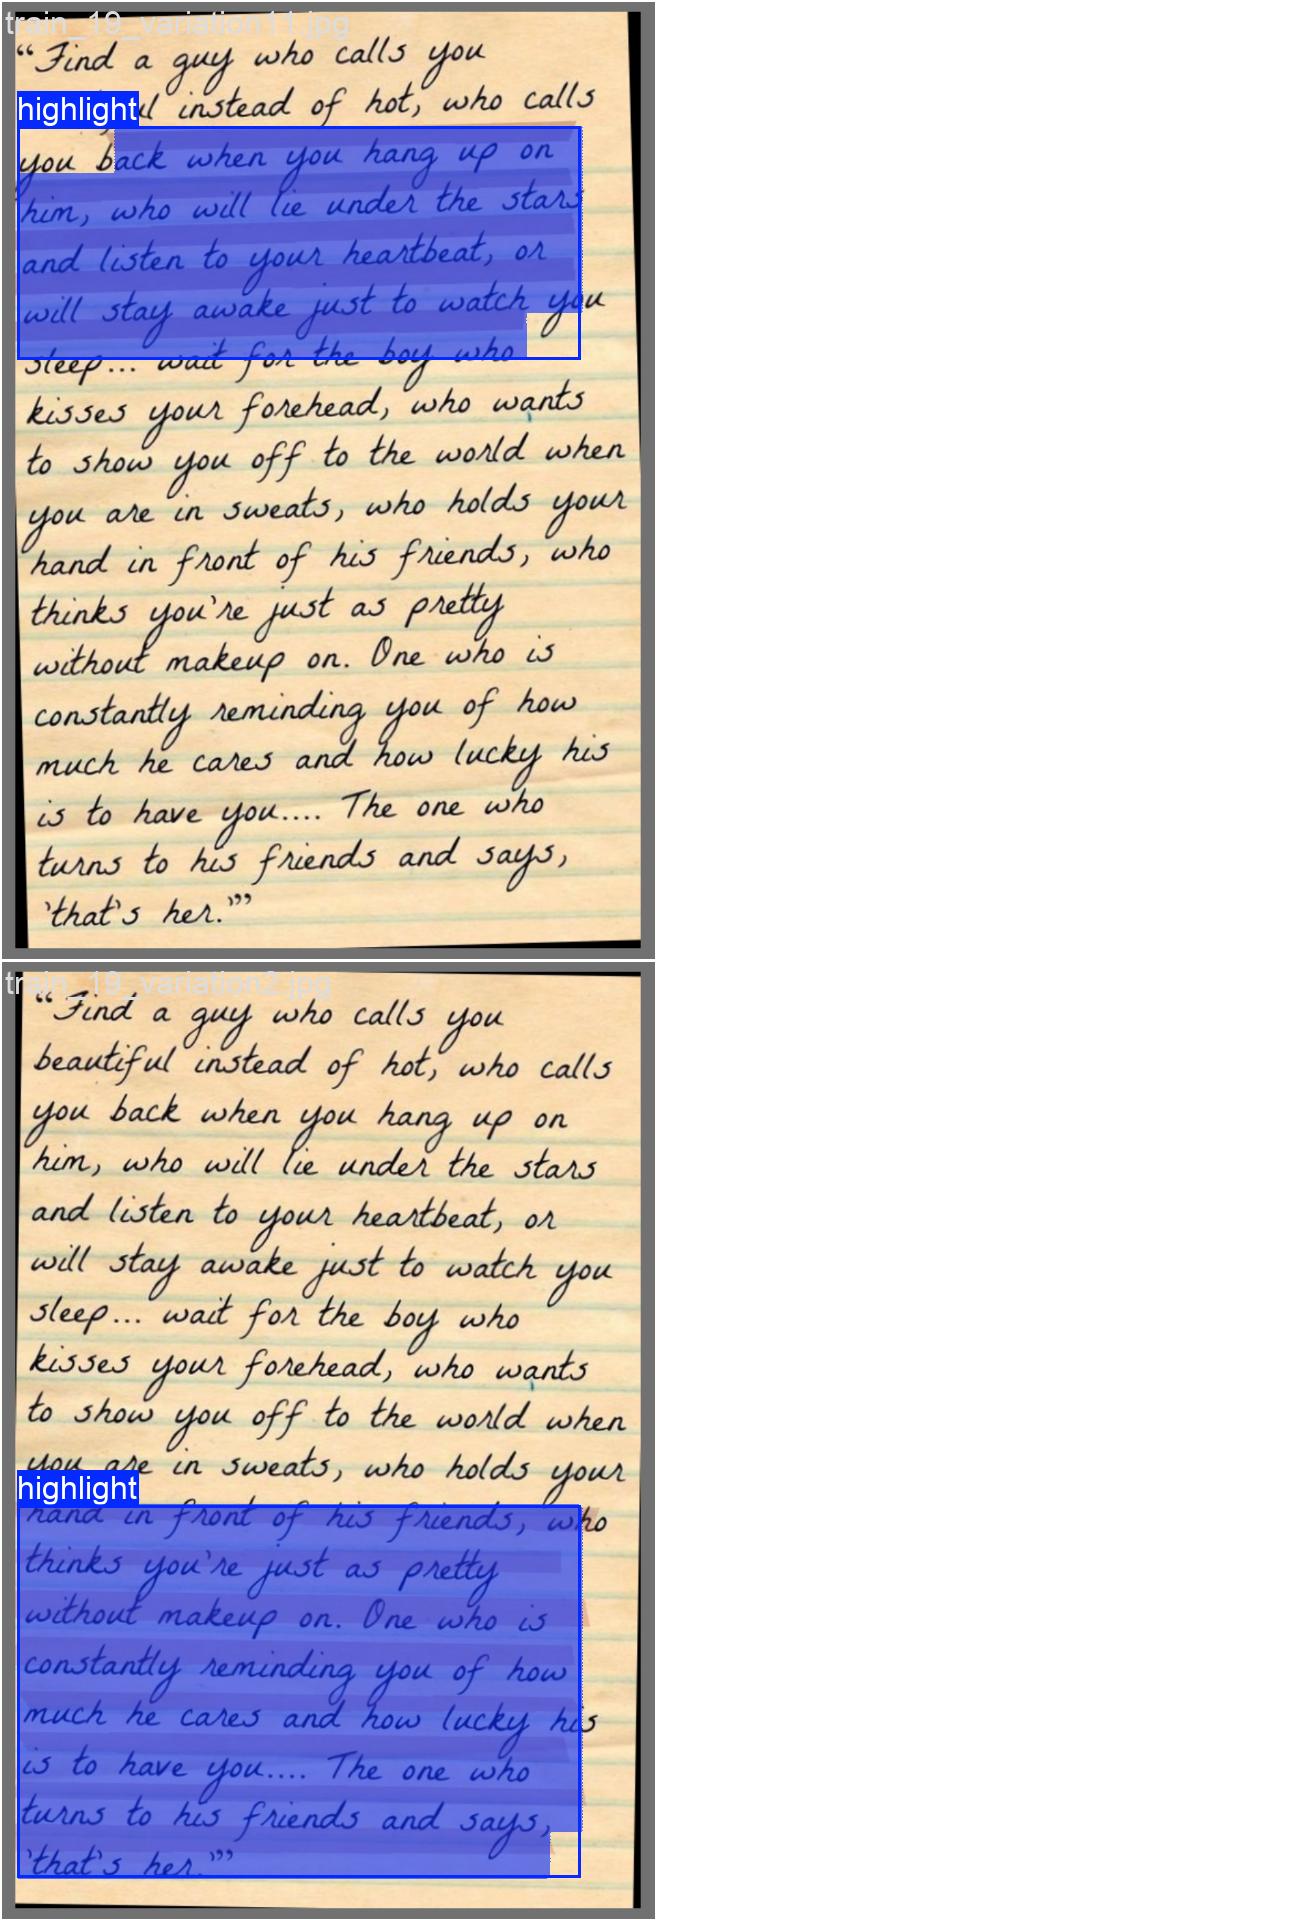 train_19_variation11.jpg
“Find a guy who calls you
highlight
instead of hot, who calls
you back when you hang up on
him, who will lie under the stars
and listen to your heartbeat, or
will stay awake just to watch you
sleep... wait for the boy who
kisses your forehead, who wants
to show you off to the world when
you are in sweats, who holds your
hand in front of his friends, who
thinks you're just as pretty
without makeup on. One who is
constantly reminding you of how
much he cares and how lucky his
is to have you.... The one who
turns to his friends and says,
'that's her.'”
train_19_variation2.jpg
“Find a guy who calls you
beautiful instead of hot, who calls
you back when you hang up on
him, who will lie under the stars
and listen to your heartbeat, or
will stay awake just to watch you
sleep... wait for the boy who
kisses your forehead, who wants
to show you off to the world when
you are in sweats, who holds your
highlight
hand in front of his friends, who
thinks you're just as pretty
without makeup on. One who is
constantly reminding you of how
much he cares and how lucky his
is to have you.... The one who
turns to his friends and says,
'that's her.'”